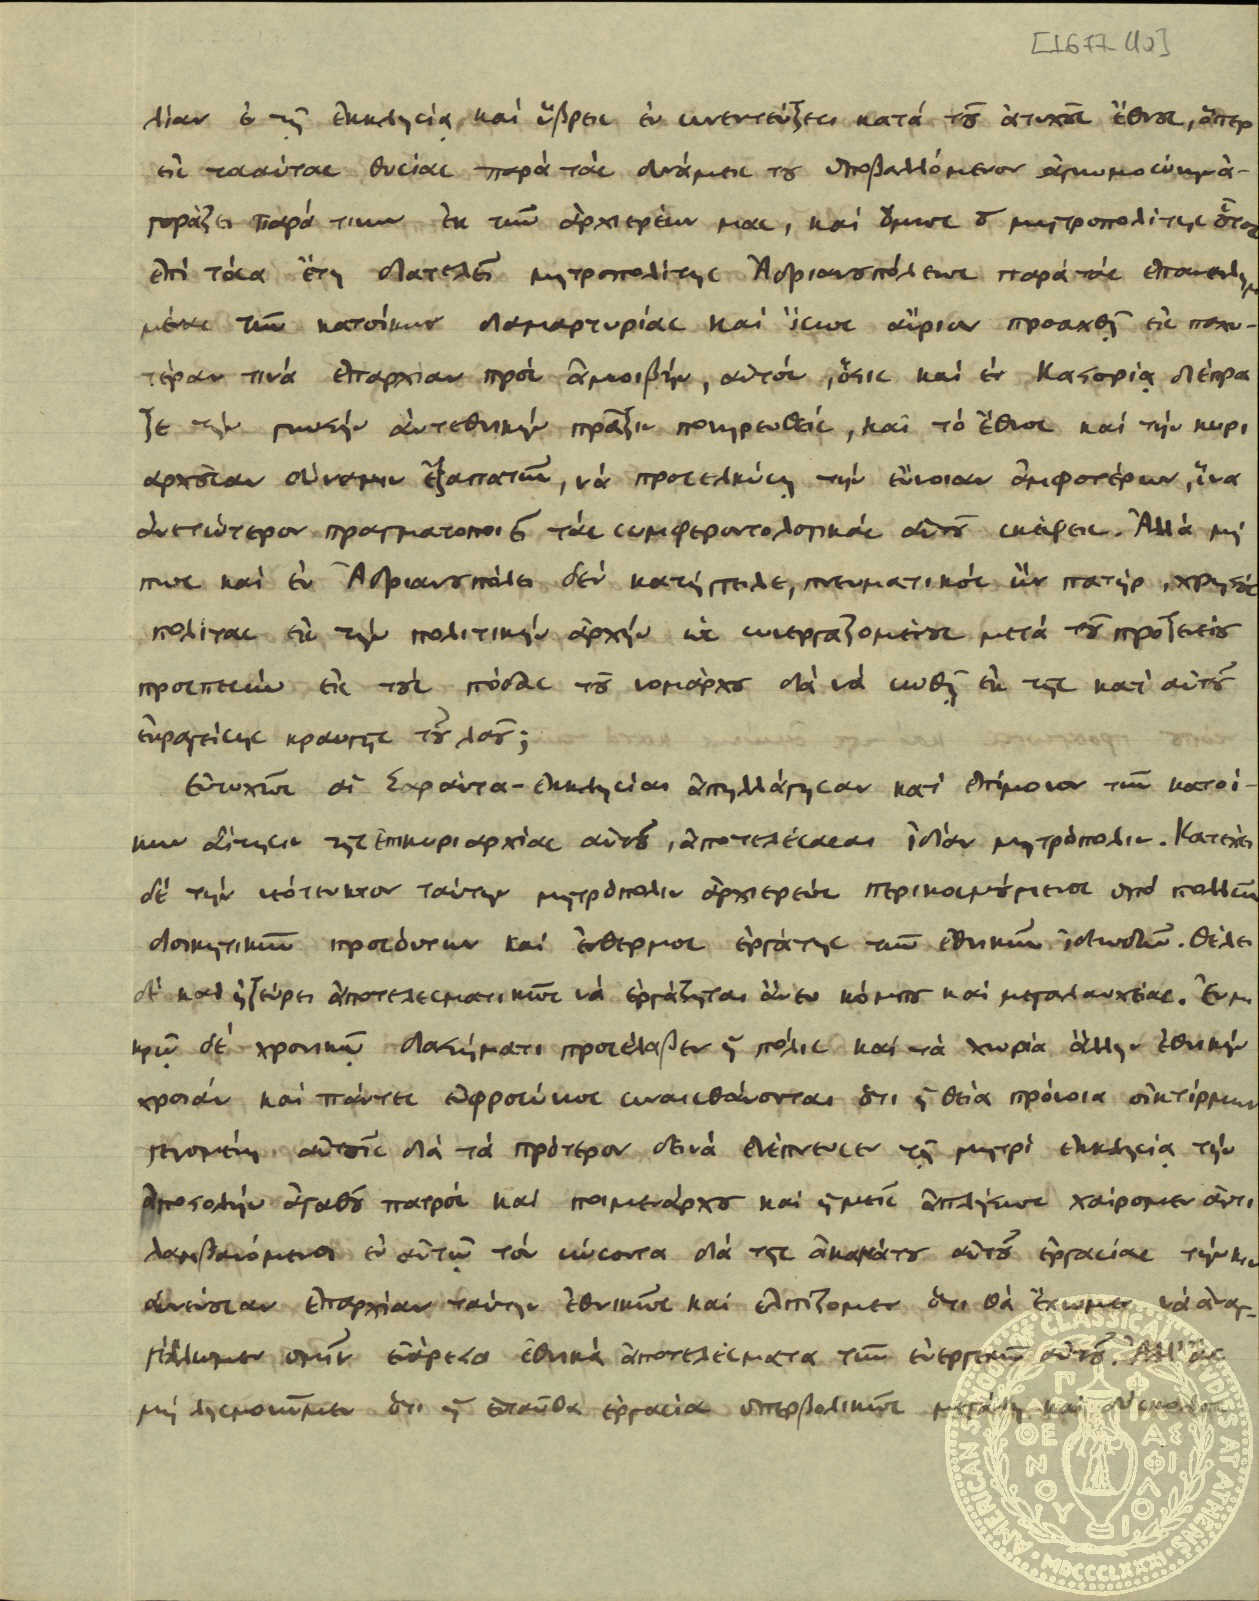 [1677 (10)]
λίαν ἐν τῇ ἐκκλησίᾳ καὶ ὕβρεις ἐν συνεντεύξεσι κατὰ τοῦ ἀτυχοῦς ἔθνους, ὅπερ
εἰς τοσαύτας θυσίας παρὰ τὰς δυνάμεις του ὑποβαλλόμενον ἀγνωμοσύνην ἀ-
γοράζει παρά τινων ἐκ τῶν ἀρχιερέων μας, καὶ ὅμως ὁ μητροπολίτης οὗτος
ἐπὶ τόσα ἔτη διατελεῖ μητροπολίτης Ἀδριανουπόλεως παρὰ τὰς ἐπανειλημ
μένας τῶν κατοίκων διαμαρτυρίας καὶ ἴσως αὔριον προαχθῇ εἰς παχυ-
τέραν τινὰ ἐπαρχίαν πρὸς ἀμοιβήν, αὐτός, ὅστις καὶ ἐν Καστορίᾳ διέπρα
ξε τὴν γνωστὴν ἀντεθνικὴν πρᾶξιν πονηρευθείς, καὶ τὸ ἔθνος καὶ τὴν κυρι
αρχοῦσαν δύναμιν ἐξαπατῶν, νὰ προσελκύσῃ τὴν εὔνοιαν ἀμφοτέρων, ἵνα
ἀνετώτερον πραγματοποιῇ τὰς συμφεροντολογικὰς αὐτοῦ σκέψεις. Ἀλλὰ μή
πως καὶ ἐν Ἀδριανουπόλει δὲν κατήγγειλε, πνευματικὸς ὢν πατήρ, χρηστοὺς
πολίτας εἰς τὴν πολιτικὴν ἀρχὴν ὡς συνεργαζομένους μετὰ τοῦ προξενείου
προσπεσὼν εἰς τοὺς πόδας τοῦ νομάρχου διὰ νὰ σωθῇ ἐκ τῆς κατ' αὐτοῦ
ἐκραγείσης κραυγῆς τοῦ λαοῦ;
Εὐτυχῶς αἱ Σαράντα-ἐκκλησίαι ἀπηλλάγησαν κατ' ἐπίμονον τῶν κατοί-
κων αἴτησιν τῆς ἐπικυριαρχίας αὐτοῦ, ἀποτελέσασαι ἰδίαν μητρόπολιν. Κατέχει
δὲ τὴν νεότευκτον ταύτην μητρόπολιν ἀρχιερεὺς περικοσμούμενος ὑπὸ πολλῶν
διοικητικῶν προσόντων καὶ ἔνθερμος ἐργάτης τῶν ἐθνικῶν ἰδεωδῶν. Θέλει
δὲ καὶ ἠξεύρει ἀποτελεσματικῶς νὰ ἐργάζηται ἄνευ κόμπου καὶ μεγαλαυχίας. Ἐν μι
κρῷ δὲ χρονικῷ διαστήματι προσέλαβεν ἡ πόλις καὶ τὰ χωρία ἄλλην ἐθνικὴν
χροιὰν καὶ πάντες εὐφροσύνως συναισθάνονται ὅτι ἡ θεία πρόνοια οἰκτίρμων
γενομένη αὐτοῖς διὰ τὰ πρότερον δεινὰ ἐνέπνευσεν τῇ μητρὶ ἐκκλησίᾳ τὴν
ἀποστολὴν ἀγαθοῦ πατρὸς καὶ ποιμενάρχου καὶ ἡμεῖς ἀπλήστως χαίρομεν ἀντι
λαμβανόμενοι ἐν αὐτῷ τὸν σώσοντα διὰ τῆς ἀκαμάτου αὐτοῦ ἐργασίας τὴν κιν
δυνεύουσαν ἐπαρχίαν ταύτην ἐθνικῶς καὶ ἐλπίζομεν ὅτι θὰ ἔχωμεν νὰ ἀναγ-
γέλλωμεν ὑμῖν εὐάρεστα ἐθνικὰ ἀποτελέσματα τῶν ἐνεργειῶν αὐτοῦ. Ἀλλ' ἂς
μὴ λησμονῶμεν ὅτι ἡ ἐνταῦθα ἐργασία ὑπερβολικῶς μεγάλη καὶ δύσκολος
AMERICAN SCHOOL OF CLASSICAL STUDIES AT ATHENS · MDCCCLXXXI